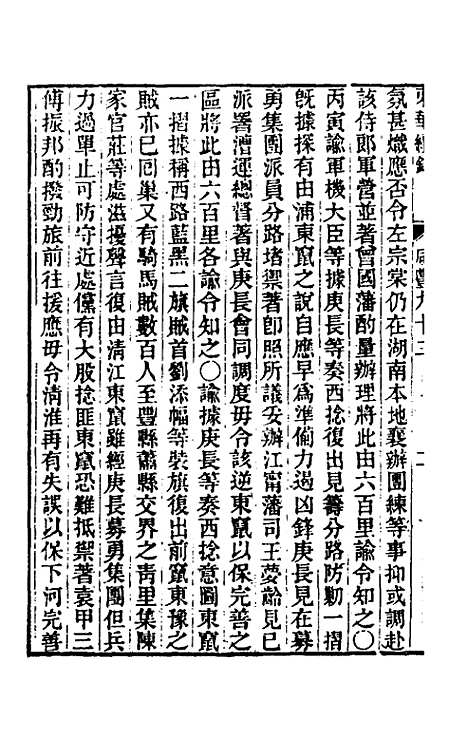 東華續錄　咸豐九十三
氛甚熾應否令左宗棠仍在湖南本地襄辦團練等事抑或調赴
該侍郞軍營並著曾國藩酌量辦理將此由六百里諭令知之〇
丙寅諭軍機大臣等據庚長等奏西捻復出見籌分路防勦一摺
旣據探有由浦東竄之說自應早爲準備力遏凶鋒庚長見在募
勇集團派員分路堵禦著卽照所議妥辦江甯藩司王夢齡見已
派署漕運總督著與庚長會同調度毋令該逆東竄以保完善之
區將此由六百里各諭令知之〇諭據庚長等奏西捻意圖東竄
一摺據稱西路藍黑二旗賊首劉添幅等裝旗復出前竄東豫之
賊亦已囘巢又有騎馬賊數百人至豐縣蕭縣交界之靑里集陳
家官莊等處滋擾聲言復由淸江東竄雖經庚長募勇集團但兵
力過單止可防守近處儻有大股捻匪東竄恐難抵禦著袁甲三
傅振邦酌撥勁旅前往援應毋令淸淮再有失誤以保下河完善